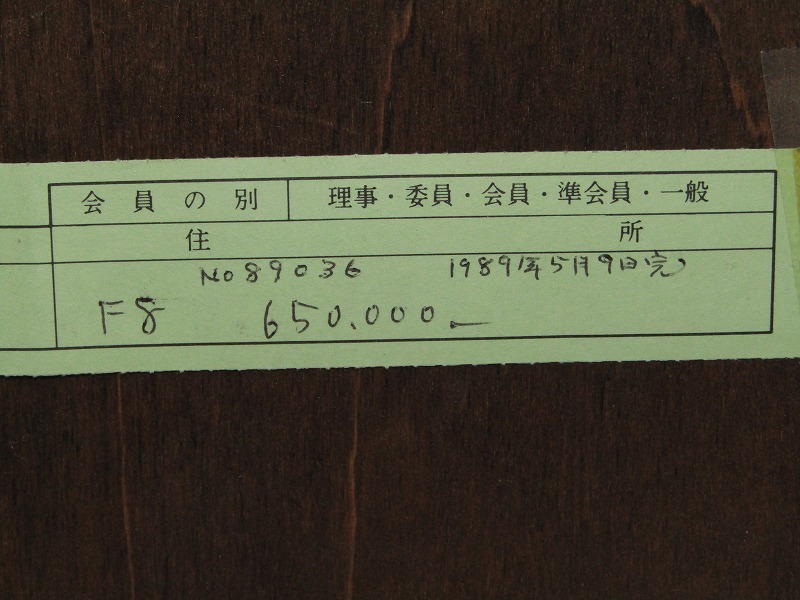 会員の別 理事・委員・会員・準会員・一般
住所
No 89036 1989年5月9日完
F8 650.000.—